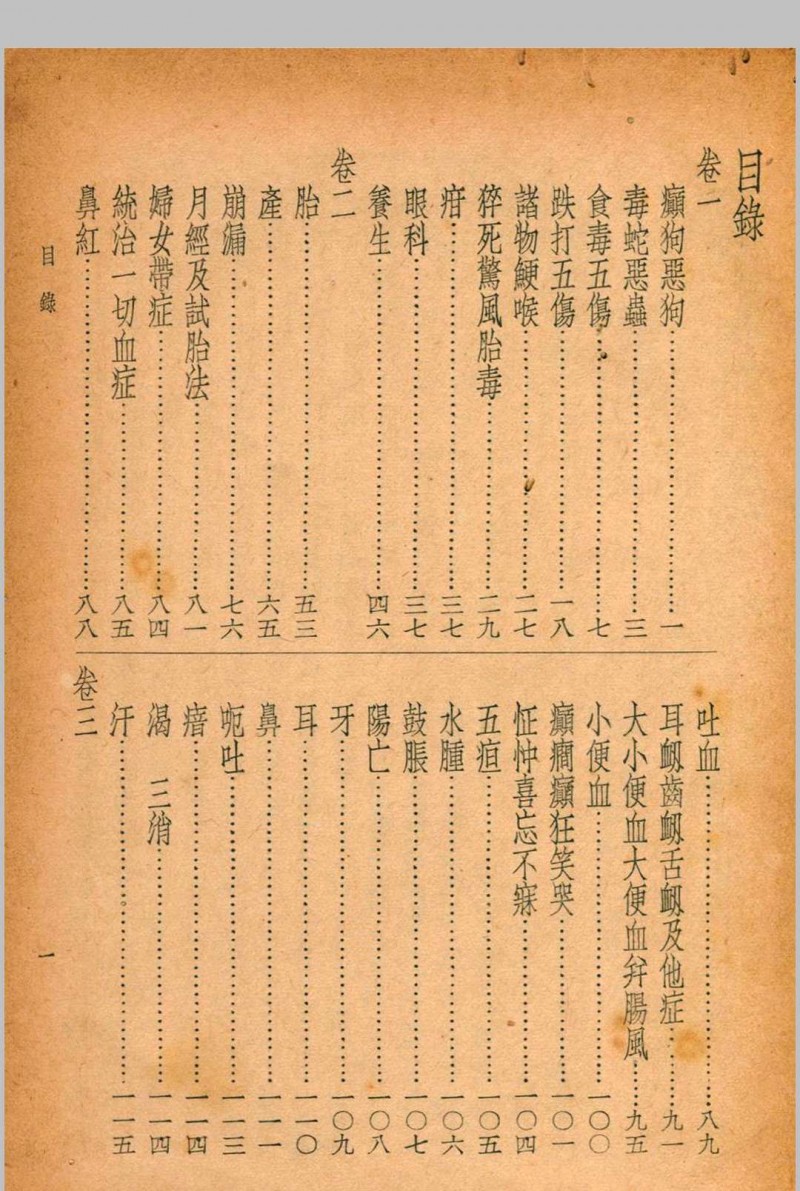 目錄
卷一
癲狗惡狗⋯⋯一
毒蛇惡蟲⋯⋯三
食毒五傷⋯⋯七
跌打五傷⋯⋯一八
諸物鯁喉⋯⋯二七
猝死驚風胎毒⋯⋯二九
疳⋯⋯三七
眼科⋯⋯三七
養生⋯⋯四六
卷二
胎⋯⋯五三
產⋯⋯六五
崩漏⋯⋯七六
月經及試胎法⋯⋯八一
婦女帶症⋯⋯八四
統治一切血症⋯⋯八五
鼻紅⋯⋯八八
吐血⋯⋯八九
耳衂齒衂舌衂及他症⋯⋯九一
大小便血大便血并腸風⋯⋯九五
小便血⋯⋯一〇〇
癲癎癲狂笑哭⋯⋯一〇一
怔忡喜忘不寐⋯⋯一〇四
五疸⋯⋯一〇五
水腫⋯⋯一〇六
鼓脹⋯⋯一〇七
陽亡⋯⋯一〇八
牙⋯⋯一〇九
耳⋯⋯一一〇
鼻⋯⋯一一一
呃吐⋯⋯一一三
瘖⋯⋯一一四
渴 三消⋯⋯一一四
汗⋯⋯一一五
卷三
目錄
一